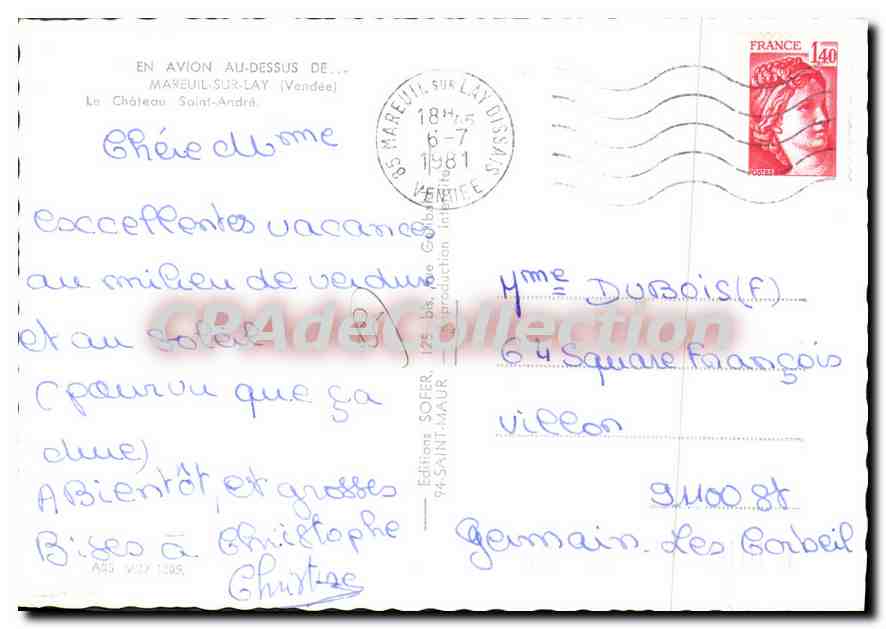 EN AVION AU-DESSUS DE...
MAREUIL-SUR-LAY (Vendée)
Le Château Saint-André.
Chére Mme
excellentes vacances
au milieu de verdure
et au soleil
(pourvu que ça
dure)
A Bientôt, et grosses
Bises à Christophe
Christine
Editions SOFER, 125 bis, rue
94-SAINT-MAUR — Reproduction interdite
85 MAREUIL SUR LAY DISSAIS
18H45
6-7
1981
VENDEE
FRANCE 1,40
Mme DUBOIS (F)
64 Square François
Villon
91100 St
Germain-Les Corbeil
CPAdeCollection